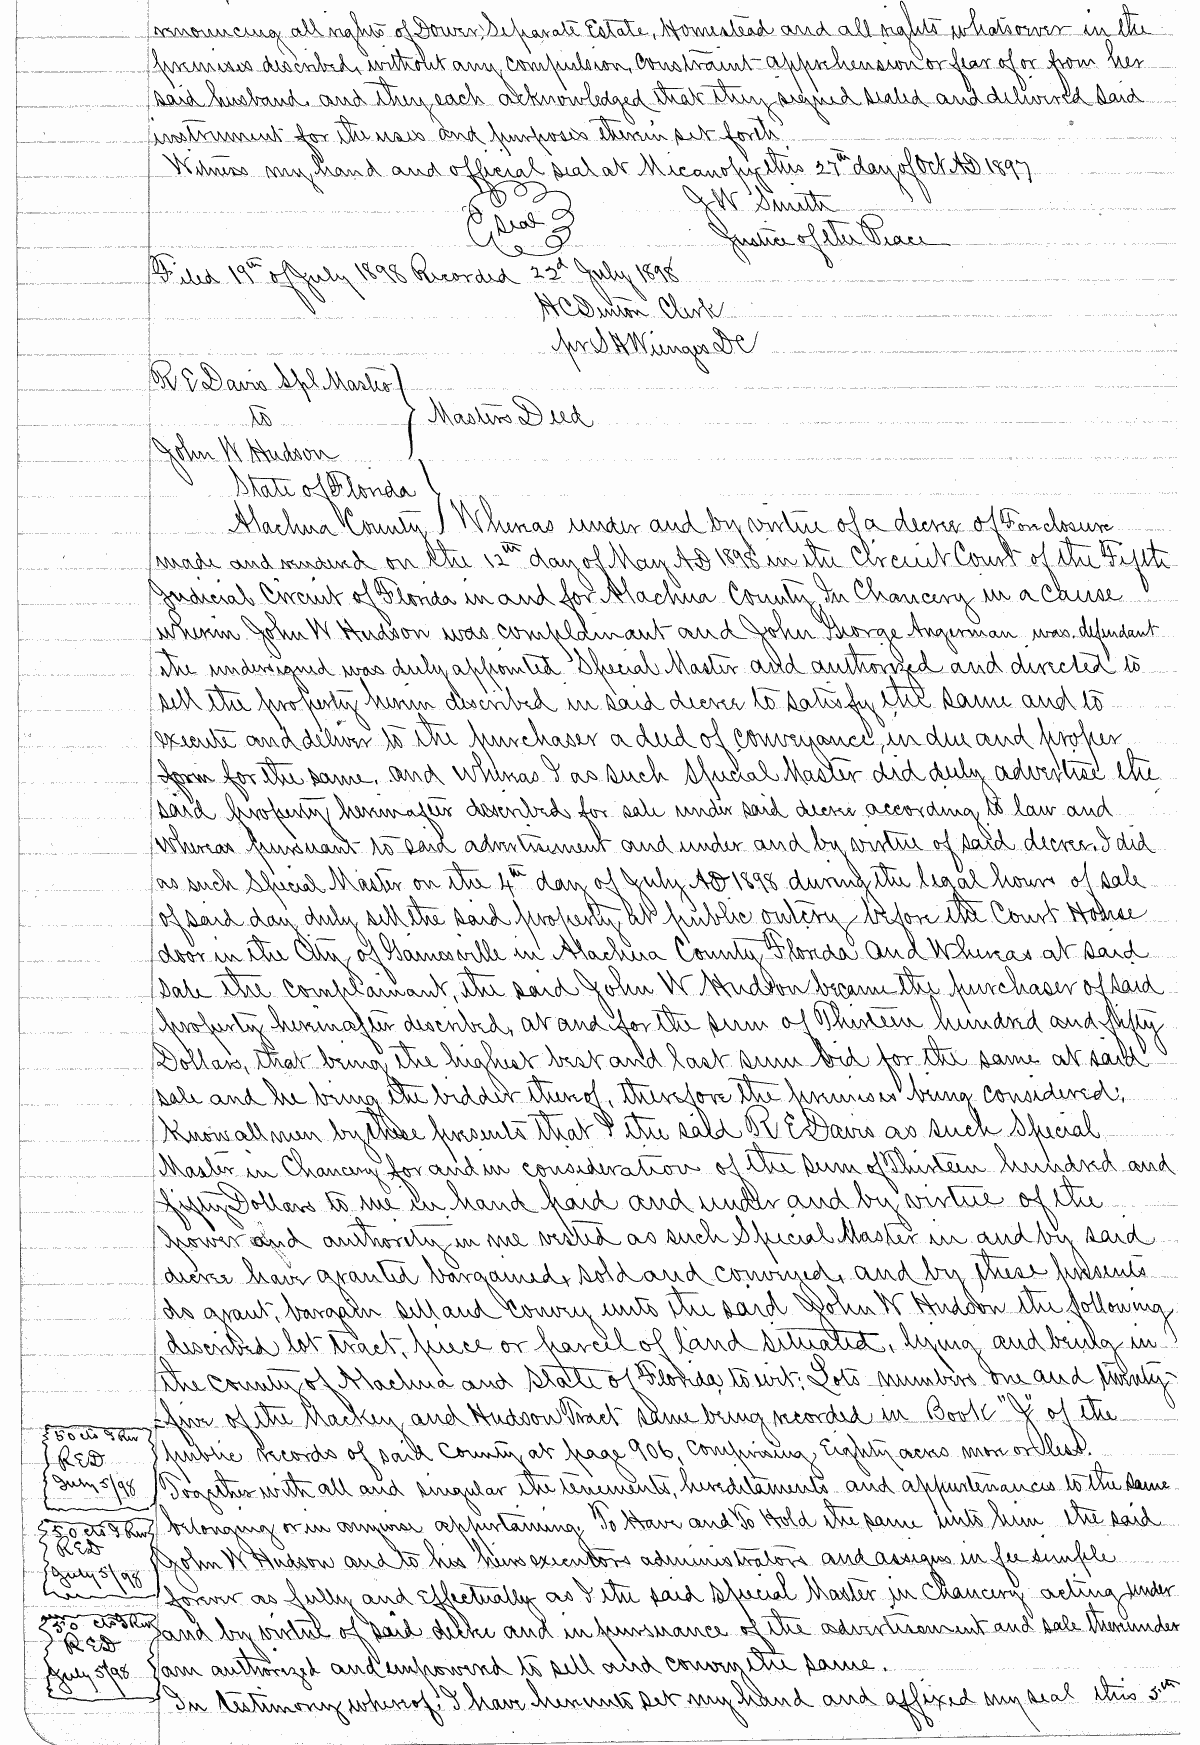 renouncing all rights of Dower, Separate Estate, Homestead and all rights whatsoever in the
premises described, without any compulsion, constraint apprehension or fear of or from her
said husband, and they each acknowledged that they signed sealed and delivered said
instrument for the uses and purposes therein set forth
Witness my hand and official seal at Micanopy this 27th day of Oct AD 1897
J W Smith
Seal
Justice of the Peace
Filed 19th of July 1898 Recorded 22d July 1898
H C Denton Clerk
pr S H Wienges DC
R E Davis Spl Master
to
Masters Deed
John W Hudson
State of Florida
Alachua County Whereas under and by virtue of a decree of Foreclosure
made and rendered on the 12th day of May AD 1898 in the Circuit Court of the Fifth
Judicial Circuit of Florida in and for Alachua County In Chancery in a cause
wherein John W Hudson was complainant and John George Angerman was defendant
the undersigned was duly appointed Special Master and authorized and directed to
sell the property herein described in said decree to satisfy the same and to
execute and deliver to the purchaser a deed of conveyance, in due and proper
form for the same, and whereas I as such Special Master did duly advertise the
said property hereinafter described for sale under said decree according to law and
Whereas pursuant to said advertisement and under and by virtue of said decree, I did
as such Special Master on the 4th day of July AD 1898 during the legal hours of sale
of said day duly sell the said property at public outcry before the Court House
door in the City of Gainesville in Alachua County Florida and Whereas at said
sale the complainant, the said John W Hudson became the purchaser of said
property hereinafter described, at and for the sum of Thirteen hundred and fifty
Dollars, that being the highest best and last sum bid for the same at said
sale and he being the bidder thereof, therefore the premises being considered,
Know all men by these presents that I the said R E Davis as such Special
Master in Chancery for and in consideration of the sum of Thirteen hundred and
fifty Dollars to me in hand paid and under and by virtue of the
power and authority in me vested as such Special Master in and by said
decree have granted bargained, sold and conveyed, and by these presents
do grant, bargain sell and convey unto the said John W Hudson the following
described lot tract, piece or parcel of land situated, lying and being in
the County of Alachua and State of Florida, to wit; Lots numbers one and twenty
five of the Mackey and Hudson Tract same being recorded in Book "J" of the
50 cts I Rev
public records of said County at page 906, comprising Eighty acres more or less.
R E D
July 5/98
Together with all and singular the tenements, hereditaments and appurtenances to the same
50 cts I Rev
belonging or in anywise appertaining, To Have and To Hold the same unto him the said
R E D
John W Hudson and to his heirs executors administrators and assigns in fee simple
July 5/98
forever as fully and effectually as I the said Special Master in Chancery acting under
50 cts I Rev
and by virtue of said decree and in pursuance of the advertisement and sale thereunder
R E D
July 5/98
am authorized and empowered to sell and convey the same.
In testimony whereof, I have hereunto set my hand and affixed my seal this 5th